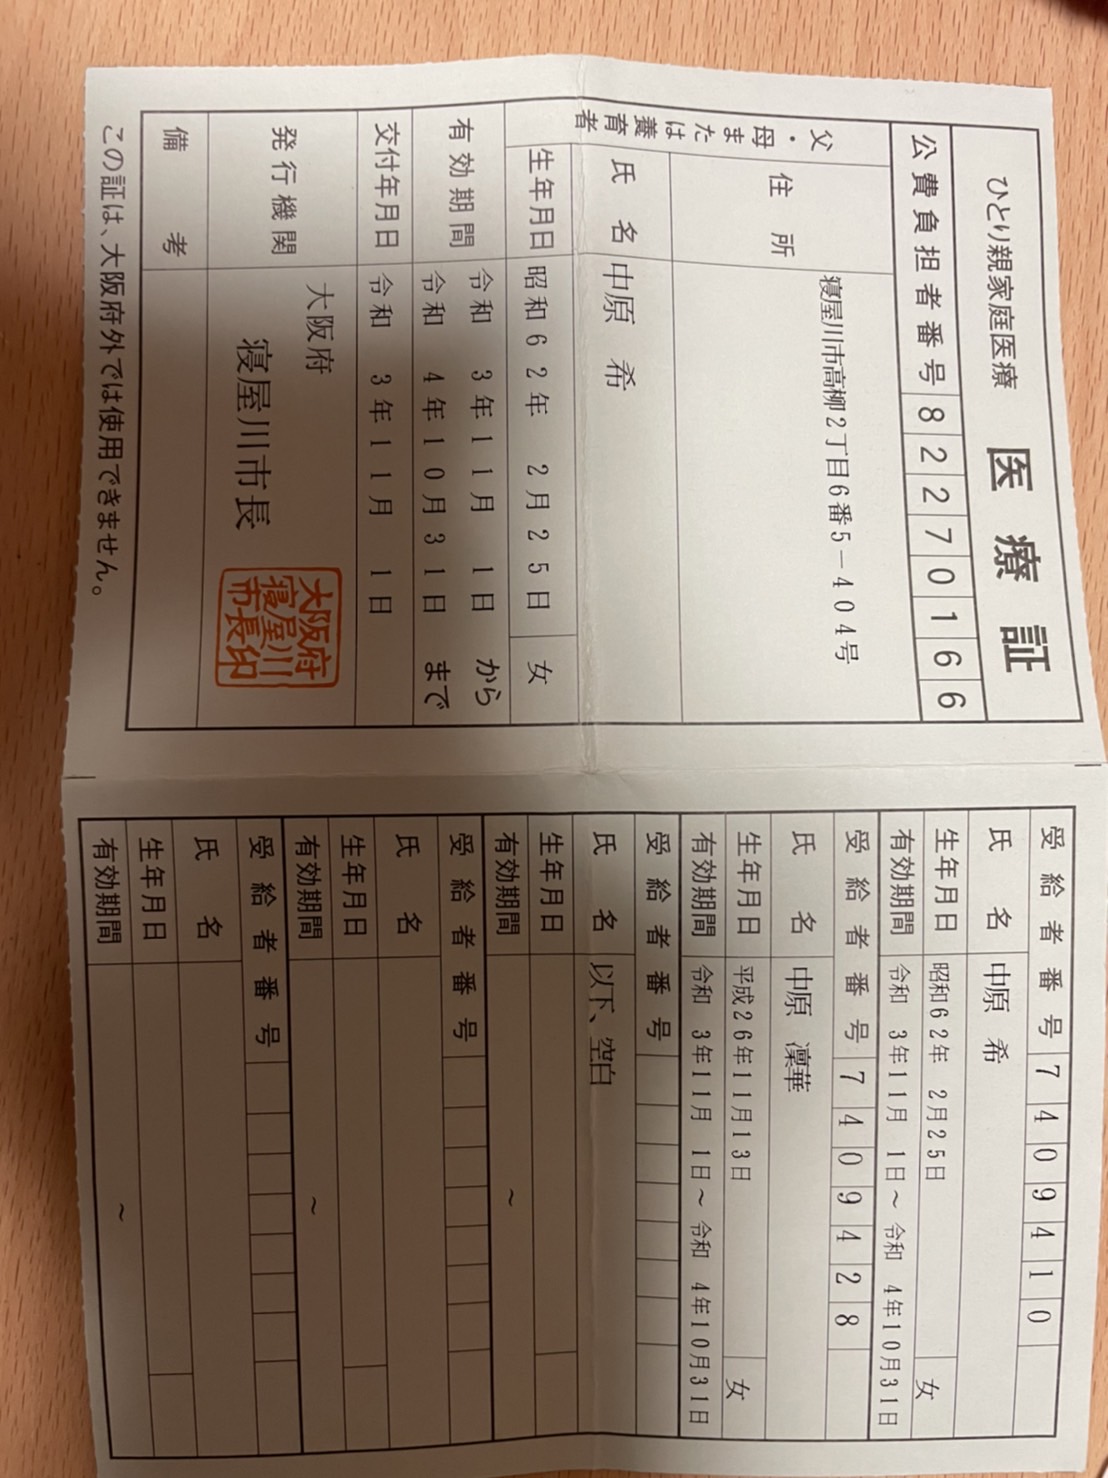 ひとり親家庭医療 医療証
公費負担者番号 82270166
父・母または養育者
住所 寝屋川市高柳2丁目6番5-404号
氏名 中原 希
生年月日 昭和62年 2月25日 女
有効期間 令和 3年11月 1日 から
令和 4年10月31日 まで
交付年月日 令和 3年11月 1日
発行機関 大阪府
寝屋川市長
大阪府寝屋川市長印
備考
この証は、大阪府外では使用できません。
受給者番号 7409410
氏名 中原 希
生年月日 昭和62年 2月25日 女
有効期間 令和 3年11月 1日~令和 4年10月31日
受給者番号 7409428
氏名 中原 凜華
生年月日 平成26年11月13日 女
有効期間 令和 3年11月 1日~令和 4年10月31日
受給者番号
氏名 以下、空白
生年月日
有効期間 ~
受給者番号
氏名
生年月日
有効期間 ~
受給者番号
氏名
生年月日
有効期間 ~